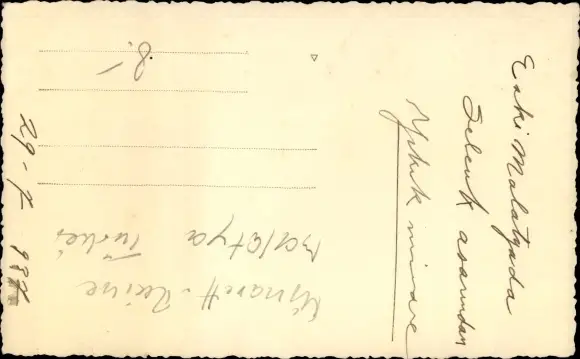 Eski Malatyada
Selcuk asarından
Yıkık minare
Minarett-Ruine
Malatya Türkei
8.-